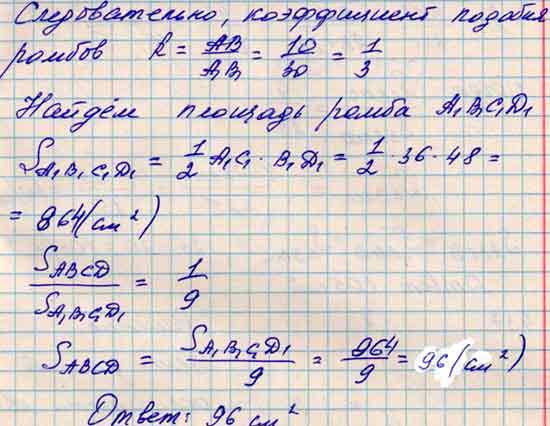 Следовательно, коэффициент подобия
ромбов k = AB/A₁B₁ = 10/30 = 1/3
Найдём площадь ромба A₁B₁C₁D₁
S_A₁B₁C₁D₁ = 1/2 A₁C₁ · B₁D₁ = 1/2 · 36 · 48 =
= 864 (см²)
S_ABCD/S_A₁B₁C₁D₁ = 1/9
S_ABCD = S_A₁B₁C₁D₁/9 = 964/9 = 96 (см²)
Ответ: 96 см²